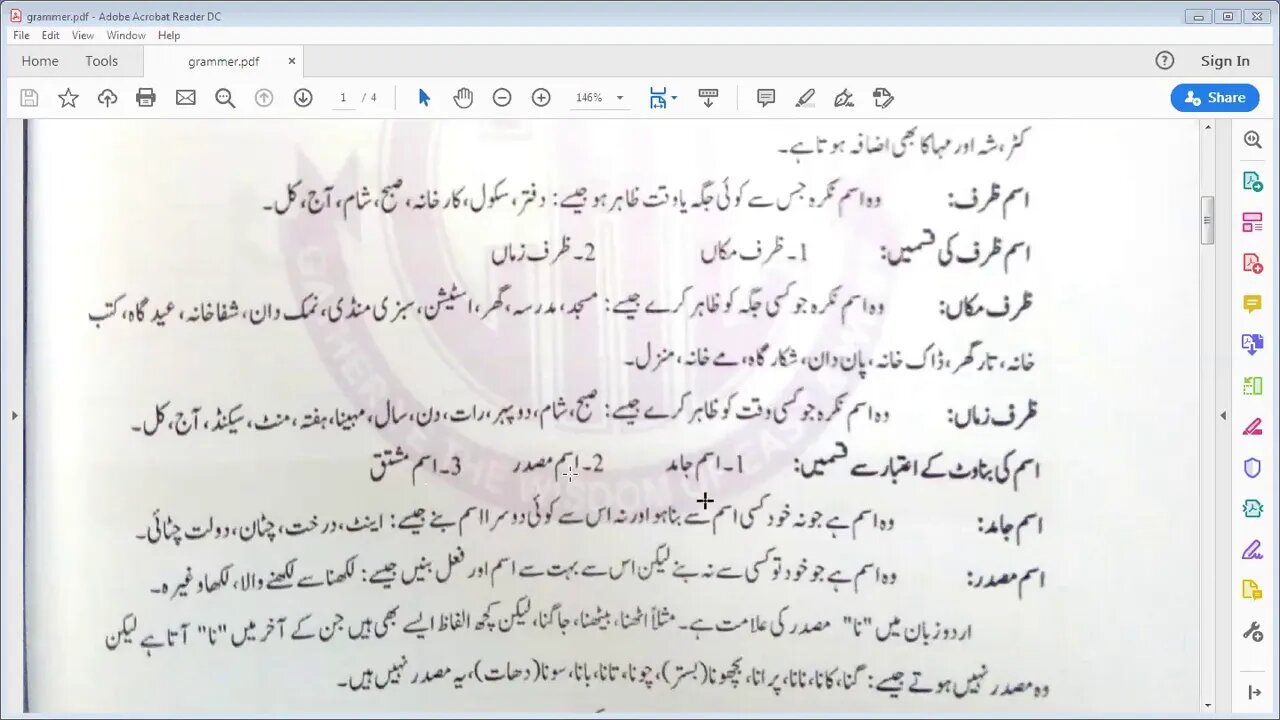 grammer.pdf - Adobe Acrobat Reader DC
File Edit View Window Help
Home Tools grammer.pdf × Sign In
1 / 4 146% Share
کٹر، شہ اور مہا کا بھی اضافہ ہوتا ہے۔
اسم ظرف: وہ اسم نکرہ جس سے کوئی جگہ یا وقت ظاہر ہو جیسے: دفتر، سکول، کارخانہ، صبح، شام، آج، کل۔
اسم ظرف کی قسمیں: 1۔ ظرف مکاں 2۔ ظرف زماں
ظرف مکاں: وہ اسم نکرہ جو کسی جگہ کو ظاہر کرے جیسے: مسجد، مدرسہ، گھر، اسٹیشن، سبزی منڈی، نمک دان، شفاخانہ، عید گاہ، کتب
خانہ، تار گھر، ڈاک خانہ، پان دان، شکار گاہ، مے خانہ، منزل۔
ظرف زماں: وہ اسم نکرہ جو کسی وقت کو ظاہر کرے جیسے: صبح، شام، دوپہر، رات، دن، سال، مہینا، ہفتہ، منٹ، سیکنڈ، آج، کل۔
اسم کی بناوٹ کے اعتبار سے قسمیں: 1۔ اسم جامد 2۔ اسم مصدر 3۔ اسم مشتق
اسم جامد: وہ اسم ہے جو نہ خود کسی اسم سے بنا ہو اور نہ اس سے کوئی دوسرا اسم بنے جیسے: اینٹ، درخت، چٹان، دولت چٹائی۔
اسم مصدر: وہ اسم ہے جو خود تو کسی سے نہ بنے لیکن اس سے بہت سے اسم اور فعل بنیں جیسے: لکھنا سے لکھنے والا، لکھا وغیرہ۔
اردو زبان میں "نا" مصدر کی علامت ہے۔ مثلاً اٹھنا، بیٹھنا، جاگنا، لیکن کچھ الفاظ ایسے بھی ہیں جن کے آخر میں "نا" آتا ہے لیکن
وہ مصدر نہیں ہوتے جیسے: گنا، کانا، نانا، پرانا، بچھونا (بستر)، چونا، تانا، بانا، سونا (دھات)، یہ مصدر نہیں ہیں۔